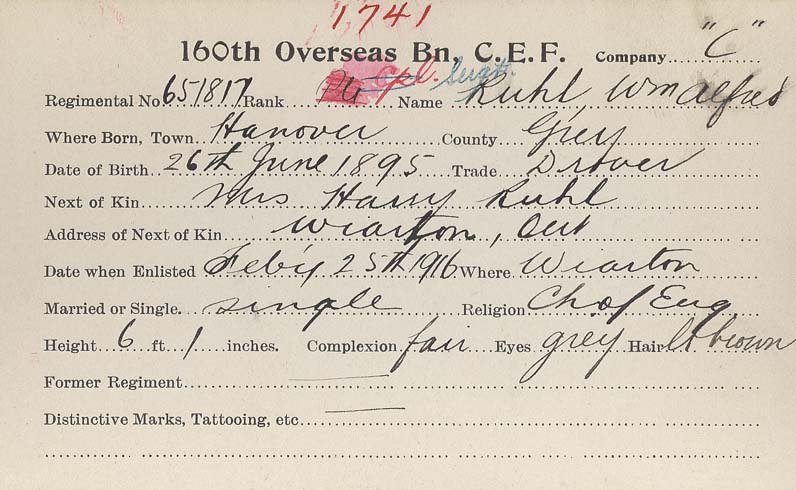 1741
160th Overseas Bn, C.E.F. Company "C"
Regimental No 651817 Rank Pte Cpl. Sergt. Name Ruhl, Wm Alfred
Where Born, Town Hanover County Grey
Date of Birth 26th June 1895 Trade Drover
Next of Kin Mrs Harry Ruhl
Address of Next of Kin Wiarton, Ont
Date when Enlisted Feb'y 25th 1916 Where Wiarton
Married or Single. single Religion Ch of Eng.
Height 6 ft 1 inches. Complexion fair Eyes grey Hair lt brown
Former Regiment
Distinctive Marks, Tattooing, etc